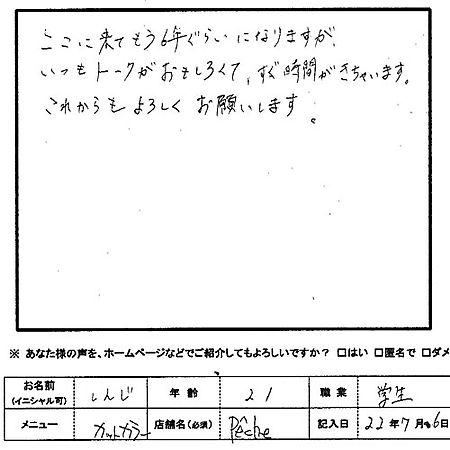 ここに来てもう6年ぐらいになりますが、
いつもトークがおもしろくて、すぐ時間がきちゃいます。
これからもよろしくお願いします。
※ あなた様の声を、ホームページなどでご紹介してもよろしいですか？ □はい □匿名で □ダメ
お名前(イニシャル可) しんじ 年齢 21 職業 学生
メニュー カットカラー 店舗名(必須) Pêche 記入日 22年7月 6日